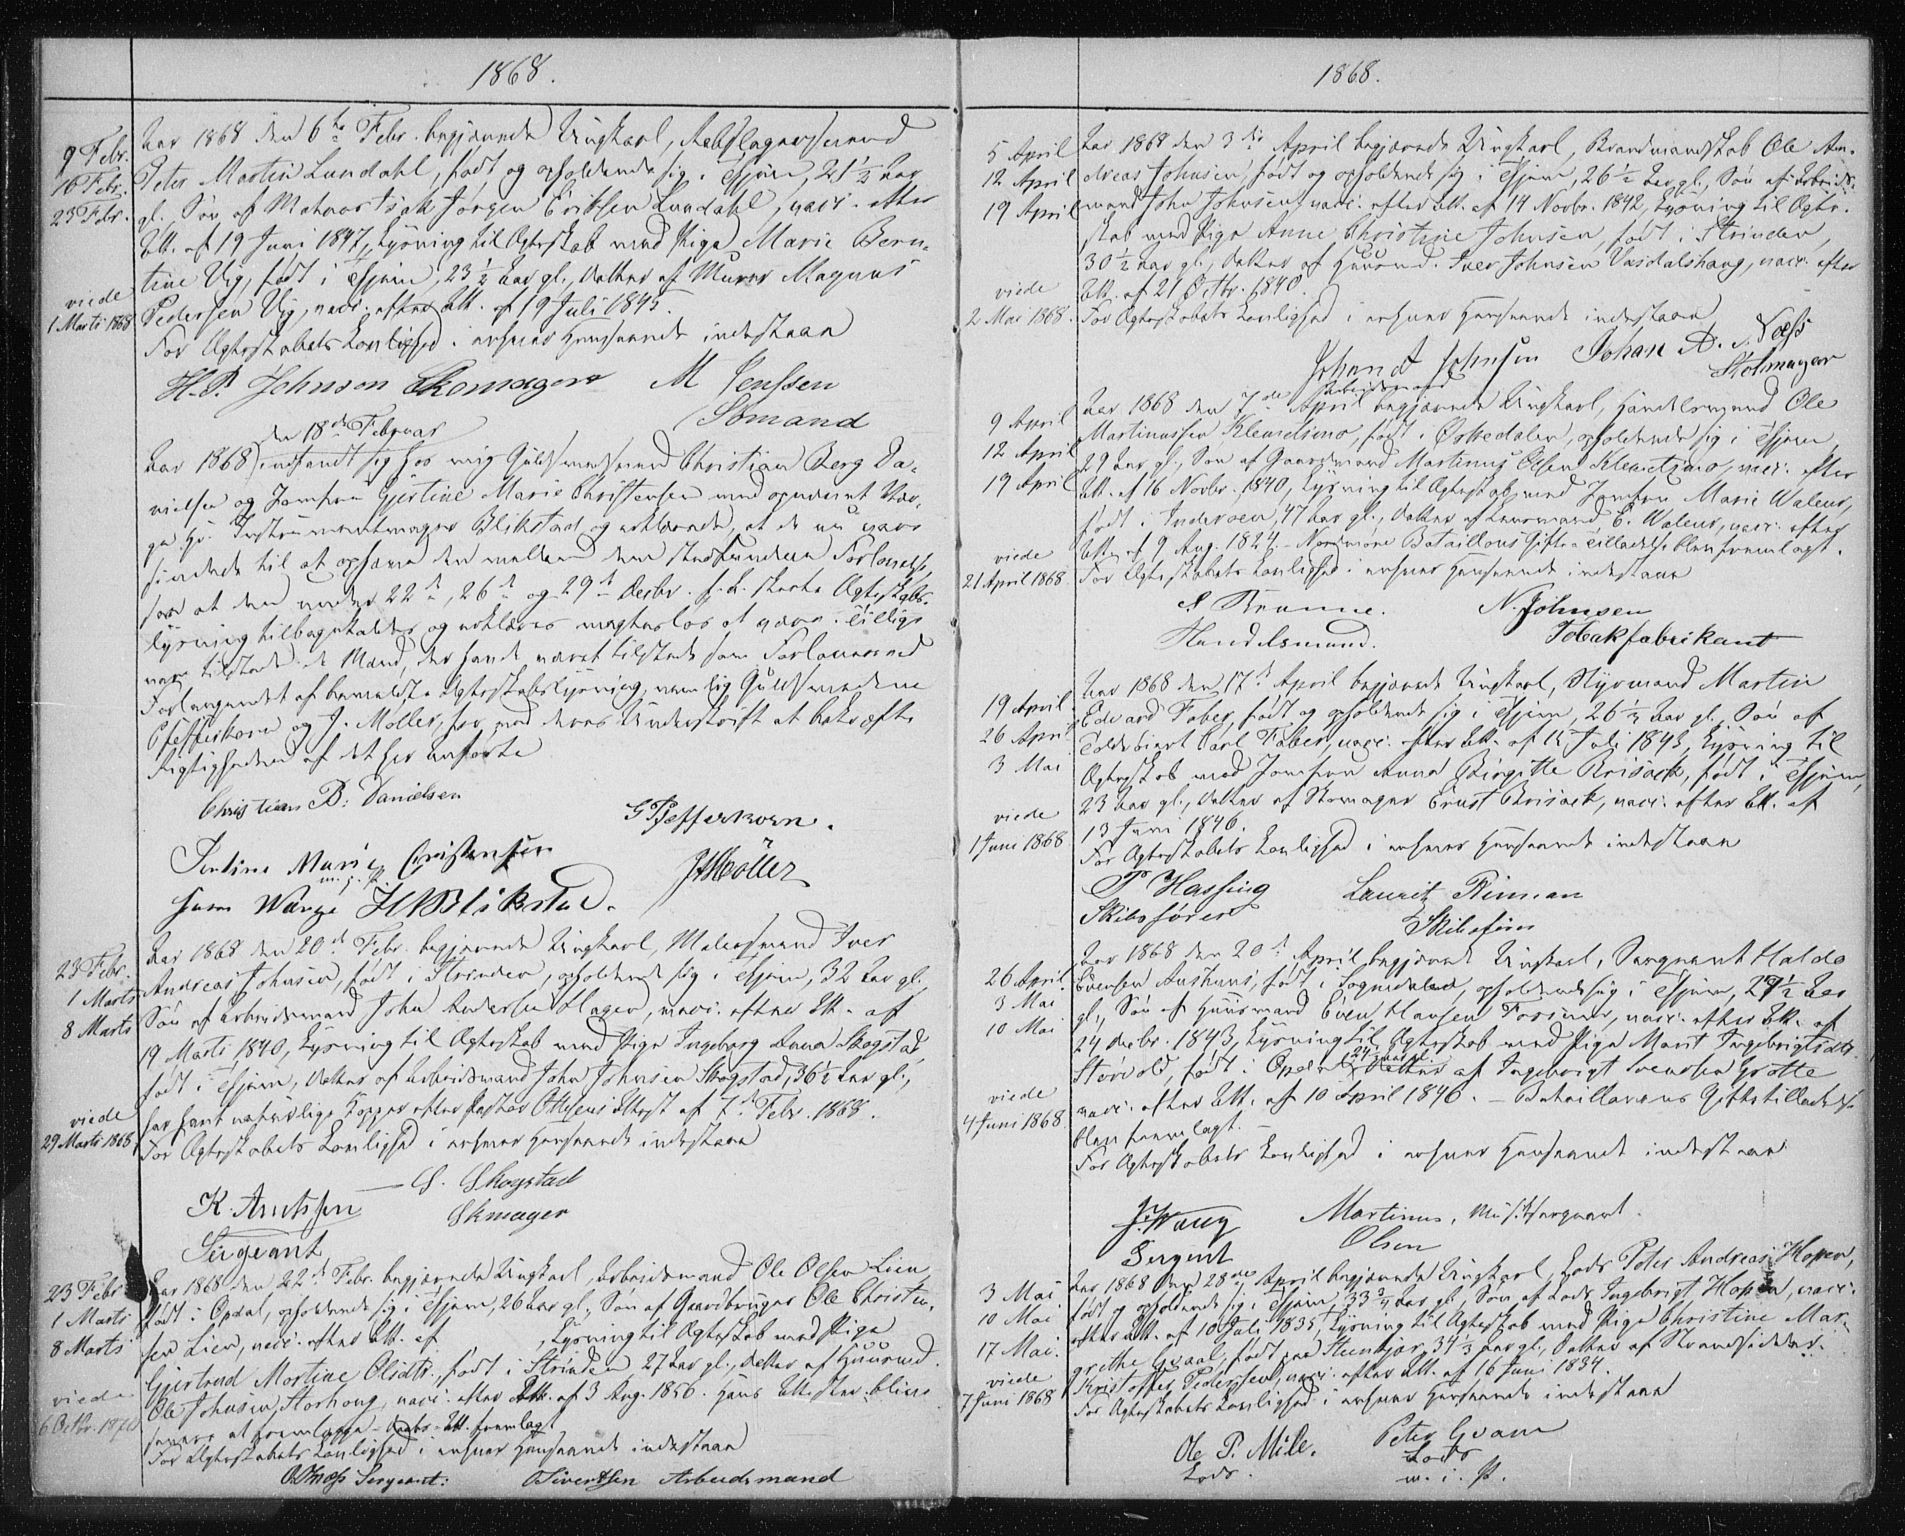 1868.
9 Febr.
16 Febr.
23 Febr.
viede
1 Marts 1868
Aar 1868 den 6te Febr. begjærede Ungkarl, Rebslagersvend
Peter Martin Lundahl, født og opholdende sig i Thjem, 21 1/2 Aar
gl., Søn af Matros Isak Jørgen Eriksen Lundahl, vacc. efter
Att. af 19 Juni 1847, Lysning til Ægteskab med Pige Marie Bern-
tine Vig, født i Thjem, 23 1/2 Aar gl., Datter af Murer Magnus
Pedersen Vig, vacc. efter Att. af 19 Juli 1845.
For Ægteskabets Lovlighed i enhver Henseende indestaae
H. P. Johnson Skomager M Jenssen
Sømand
den 18de Februar
Aar 1868 indfandt sig hos mig Guldsmedsvend Christian Berg Da-
nielsen og Jomfru Gjertine Marie Christensen med opnævnt Vær-
ge Hr. Instrumentmager Blikstad og erklærede, at de nu vare
sindede til at ophæve den mellem dem stedfundne Forlovelse,
saa at den under 22de, 26de og 29de Decbr. f. A. skeete Ægteskabs-
lysning tilbagekaldes og erklæres magtesløs at være. Tillige
vare tilstede de Mænd, der havde været tilstede som Forlovere ved
Forlangendet af bemeldte Ægteskabslysning, nemlig Guldsmedene
Pfefferkorn og J. Møller, for med deres Underskrift at bekræfte
Rigtigheden af det her anførte
Christian B: Danielsen
G Pfefferkorn.
Marie Christensen
m. f. P.
J Møller
som Værge H Blikstad.
23 Febr.
1 Marts
8 Marts
viede
29 Marts 1868
Aar 1868 den 20de Febr. begjærede Ungkarl, Malersvend Iver
Andreas Johnsen, født i Strinden, opholdende sig i Thjem, 32 Aar gl.,
Søn af Arbeidsmand John Andersen Hagen, vacc. efter Att. af
19 Marts 1840, Lysning til Ægteskab med Pige Ingeborg Anna Skogstad,
født i Thjem, Datter af Arbeidsmand John Johnsen Skogstad, 36 1/2 Aar gl.,
har havt naturlige Kopper efter Pastor Ottesens Attest af 7de Febr. 1868.
For Ægteskabets Lovlighed i enhver Henseende indestaae
K. Arntssen S. Skogstad
Skmager
Sergeant
23 Febr.
1 Marts
8 Marts
viede
6 Octbr. 1870
Aar 1868 den 22de Febr. begjærede Ungkarl, Arbeidsmand Ole Olsen Lien
født i Opdal, opholdende sig i Thjem, 26 Aar gl., Søn af Gaardbruger Ole Christen-
sen Lien, vacc. efter Att. af , Lysning til Ægteskab med Pige
Gjertrud Martine Olsdtr., født i Strinden, 27 Aar gl., Datter af Huusmd.
Ole Johnsen Storhoug, vacc. efter Att. af 3 Aug. 1856. Hans Attester blive
senere at fremlægge - Att. fremlagt
For Ægteskabets Lovlighed i enhver Henseende indestaae
Sergeant: O Sivertsen Arbeidsmand
1868.
5 April
12 April
19 April
viede
2 Mai 1868.
Aar 1868 den 3die April begjærede Ungkarl, Brandmandskab Ole An-
dreas Johnsen, født og opholdende sig i Thjem, 26 1/2 Aar gl., Søn af Arbeids-
mand John Johnsen, vacc. efter Att. af 14 Novbr. 1842, Lysning til Ægte-
skab med Pige Anne Christine Johnsen, født i Strinden,
30 1/2 Aar gl., Datter af Huusmd. Iver Johnsen Vasdalshaug, vacc. efter
Att. af 21 Octbr. 1840.
For Ægteskabets Lovlighed i enhver Henseende indestaae
Johand Johnsen Johan A. Næss
Arbeidsmand Stolmager
9 April
12 April
19 April
viede
21 April 1868
Aar 1868 den 7de April begjærede Ungkarl, Handelsmand Ole
Martinussen Klemetsmo, født i Ørkedalen, opholdende sig i Thjem,
29 Aar gl., Søn af Gaardmand Martinus Olsen Klemetsmo, vacc. efter
Att. af 16 Novbr. 1840, Lysning til Ægteskab med Jomfru Marie Waleur,
født i Inderøen, 47 Aar gl., Datter af Lensmand E. Waleur, vacc. efter
Att. af 9 Aug. 1824. - Nordmøre Bataillons Gifte-Tilladelse blev fremlagt.
For Ægteskabets Lovlighed i enhver Henseende indestaae
Handelsmand.
N. Johnsen
Tobakfabrikant
19 April
26 April
3 Mai
viede
1 Juni 1868
Aar 1868 den 17de April begjærede Ungkarl, Styrmand Martin
Edvard Faber, født og opholdende sig i Thjem, 26 1/4 Aar gl., Søn af
Toldbetjent Carl Faber, vacc. efter Att. af 15 Juli 1843, Lysning til
Ægteskab med Jomfru Anna Birgitte Brisack, født i Thjem,
23 Aar gl., Datter af Skomager Ernst Brisack, vacc. efter Att. af
13 Juni 1846.
For Ægteskabets Lovlighed i enhver Henseende indestaae
P Hassing Lauritz Riiman
Skibsfører Skibsfører
26 April
3 Mai
10 Mai
viede
4 Juni 1868
Aar 1868 den 20de April begjærede Ungkarl, Sergeant Haldo
Evensen Aushuus, født i Sognedalen, opholdende sig i Thjem, 27 1/2 Aar
gl., Søn af Huusmand Even Hansen Fossmo, vacc. efter Att. af
24 Decbr. 1843, Lysning til Ægteskab med Pige Marit Ingebrigtsdtr.
Størvold, født i Opdal, 24 Aar gl., Datter af Ingebrigt Svendsen Grøtte
vacc. efter Att. af 10 April 1846. - Bataillonens Giftetilladelse
blev fremlagt.
For Ægteskabets Lovlighed i enhver Henseende indestaae
J. Waug Martinus Olsen, Musiksergeant.
Sergent
3 Mai
10 Mai
17 Mai.
viede
7 Juni 1868
Aar 1868 den 28de April begjærede Ungkarl, Lods Peter Andreas Hopen,
født og opholdende sig i Thjem, 33 3/4 Aar gl., Søn af Lods Ingebrigt Hopen, vacc.
efter Att. af 10 Juli 1835, Lysning til Ægteskab med Pige Christine Mar-
grethe Qvaal, født paa Steinkjær, 34 1/3 Aar gl., Datter af Strandsidder
Kristoffer Pedersen, vacc. efter Att. af 16 Juni 1834.
For Ægteskabets Lovlighed i enhver Henseende indestaae
Ole P. Mile. Peter Qvam
Lods. Lods
m. i. P.